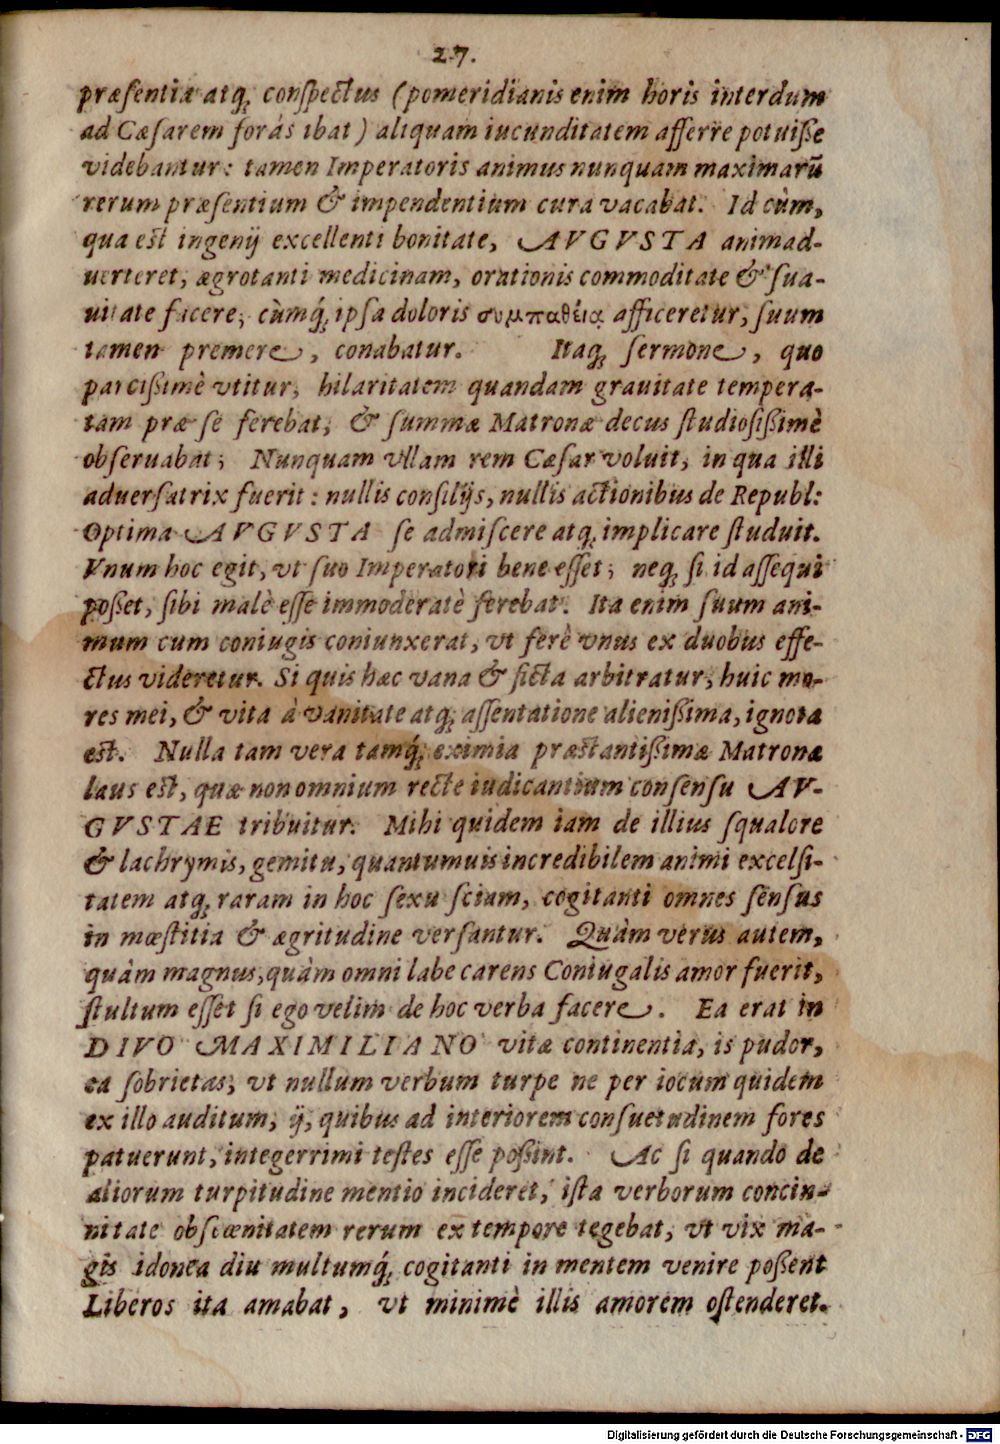 27.
præsentia atq; conspectus (pomeridianis enim horis interdum
ad Cæsarem foràs ibat) aliquam iucunditatem afferre potuiße
videbantur: tamen Imperatoris animus nunquam maximarũ
rerum præsentium & impendentium cura vacabat. Id cùm,
qua est ingenij excellenti bonitate, AVGVSTA animad-
uerteret, ægrotanti medicinam, orationis commoditate & sua-
uitate facere, cùmq́; ipsa doloris συμπαθέια afficeretur, suum
tamen premere, conabatur. Itaq; sermone, quo
parcißimè vtitur, hilaritatem quandam grauitate tempera-
tam præ se ferebat, & summæ Matronæ decus studiosißimè
obseruabat; Nunquam vllam rem Cæsar voluit, in qua illi
aduersatrix fuerit: nullis consilijs, nullis actionibus de Republ:
Optima AVGVSTA se admiscere atq; implicare studuit.
Vnum hoc egit, vt suo Imperatori bene esset; neq; si id assequi
poßet, sibi malè esse immoderatè ferebat. Ita enim suum ani-
mum cum coniugis coniunxerat, vt ferè vnus ex duobus effe-
ctus videretur. Si quis hæc vana & ficta arbitratur, huic mo-
res mei, & vita à vanitate atq; assentatione alienißima, ignota
est. Nulla tam vera tamq́; eximia præstantißimæ Matronæ
laus est, quæ non omnium recte iudicantium consensu AV-
GVSTAE tribuitur. Mihi quidem iam de illius squalore
& lachrymis, gemitu, quantumuis incredibilem animi excelsi-
tatem atq; raram in hoc sexu sciam, cogitanti omnes sensus
in mœstitia & ægritudine versantur. Quàm verus autem,
quàm magnus, quàm omni labe carens Coniugalis amor fuerit,
stultum esset si ego velim de hoc verba facere. Ea erat in
DIVO MAXIMILIANO vitæ continentia, is pudor,
ea sobrietas, vt nullum verbum turpe ne per iocum quidem
ex illo auditum, ij, quibus ad interiorem consuetudinem fores
patuerunt, integerrimi testes esse poßint. Ac si quando de
aliorum turpitudine mentio incideret, ista verborum concin-
nitate obscœnitatem rerum ex tempore tegebat, vt vix ma-
gis idonea diu multumq́; cogitanti in mentem venire poßent
Liberos ita amabat, vt minimè illis amorem ostenderet.
Digitalisierung gefördert durch die Deutsche Forschungsgemeinschaft - DFG